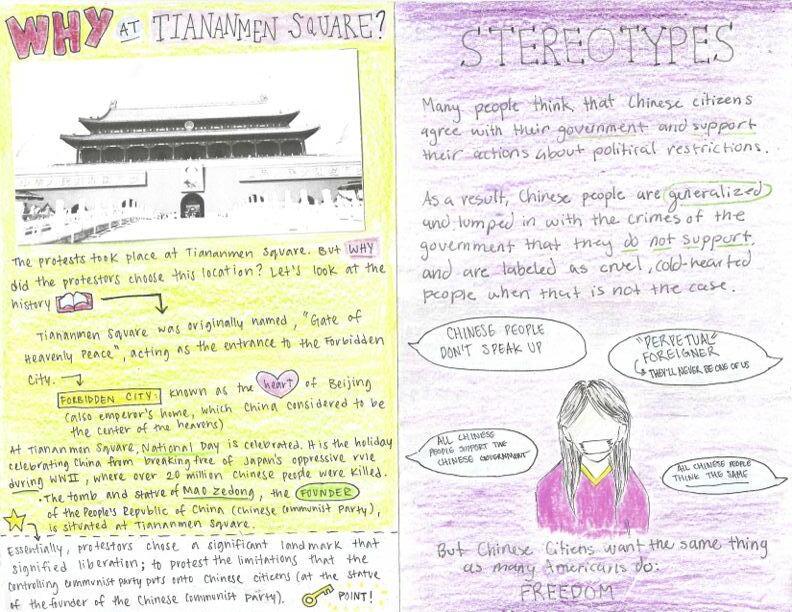 WHY AT TIANANMEN SQUARE?
The protests took place at Tiananmen Square. But WHY
did the protestors choose this location? Let's look at the
history
Tiananmen Square was originally named, "Gate of
Heavenly Peace", acting as the entrance to the Forbidden
City.
FORBIDDEN CITY: known as the heart of Beijing
(also emperor's home, which China considered to be
the center of the heavens)
At Tiananmen Square, National Day is celebrated. It is the holiday
celebrating China from breaking free of Japan's oppressive rule
during WWII, where over 20 million Chinese people were killed.
• The tomb and statue of Mao Zedong, the FOUNDER
of the People's Republic of China (Chinese Communist Party),
is situated at Tiananmen Square.
Essentially, protestors chose a significant landmark that
signified liberation; to protest the limitations that the
controlling communist party puts onto Chinese citizens (at the statue
of the founder of the Chinese Communist Party).
POINT!
STEREOTYPES
Many people think that Chinese citizens
agree with their government and support
their actions about political restrictions.
As a result, Chinese people are generalized
and lumped in with the crimes of the
government that they do not support,
and are labeled as cruel, cold-hearted
people when that is not the case.
CHINESE PEOPLE
DON'T SPEAK UP
"PERPETUAL"
FOREIGNER
THEY'LL NEVER BE ONE OF US
ALL CHINESE
PEOPLE SUPPORT THE
CHINESE GOVERNMENT
ALL CHINESE PEOPLE
THINK THE SAME
But Chinese Citizens want the same thing
as many Americans do:
FREEDOM